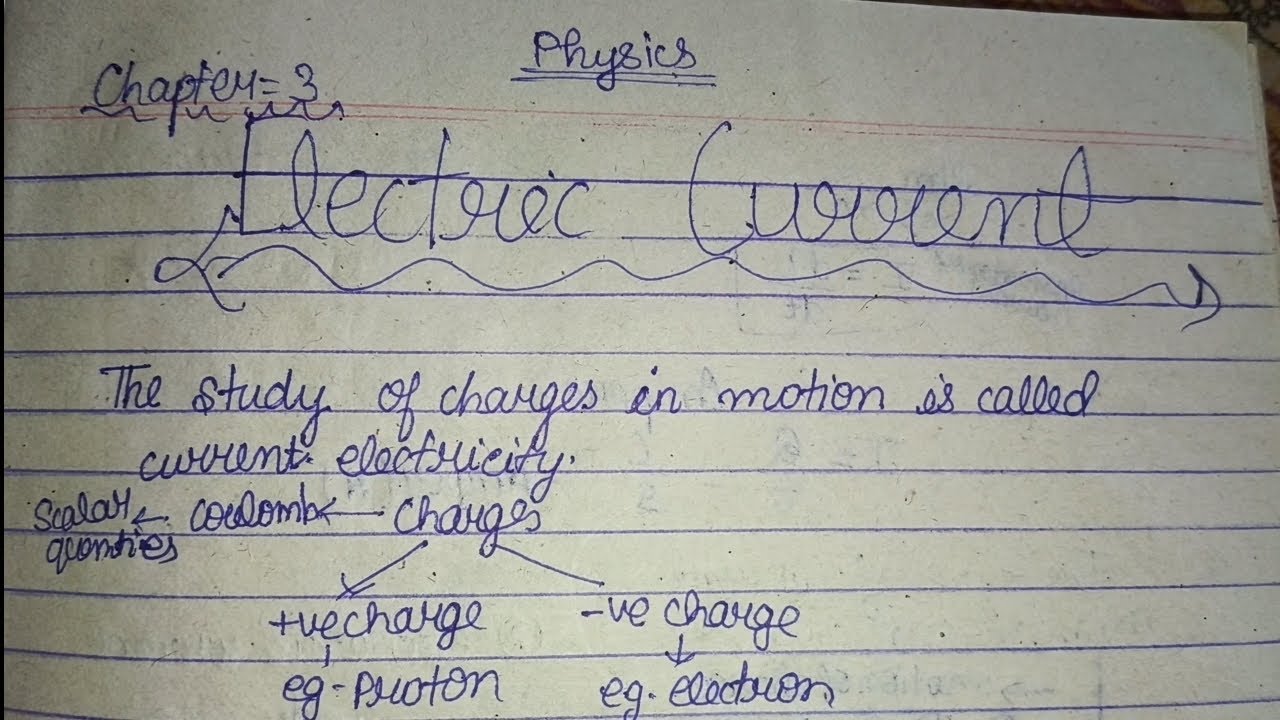 Physics
Chapter=3
Electric Current
The study of charges in motion is called
current electricity.
scalar quantities ← coulomb ← charges
+ve charge -ve charge
eg-Proton eg. electron